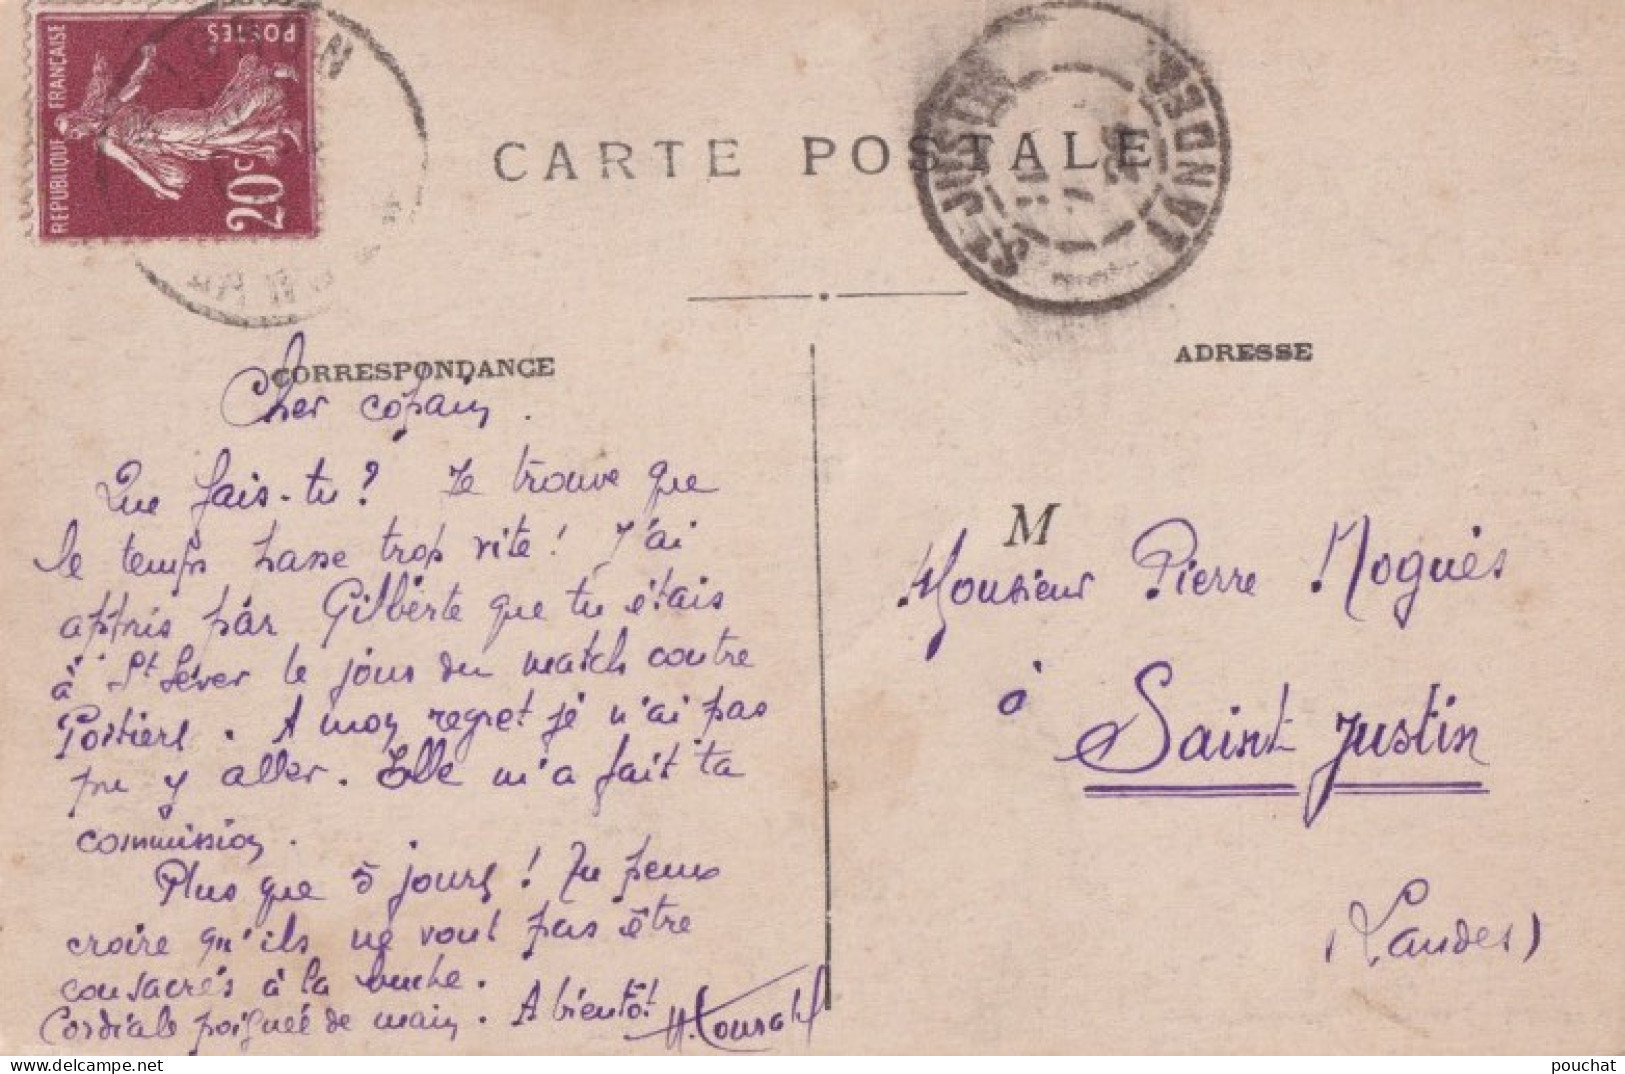 POSTES
REPUBLIQUE FRANÇAISE
20c
CARTE POSTALE
ST JUSTIN
LANDES
CORRESPONDANCE
Cher copain.
Que fais-tu? Je trouve que
le temps passe trop vite! J'ai
appris par Gilberte que tu étais
à St Sever le jour du match contre
Poitiers. A mon regret je n'ai pas
pu y aller. Elle m'a fait ta
commission.
Plus que 5 jours! Tu peux
croire qu'ils ne vont pas être
consacrés à la buche.
Cordiale poignée de main. A bientôt!
ADRESSE
M
Monsieur Pierre Noguès
à
Saint-Justin
(Landes)
pouchat